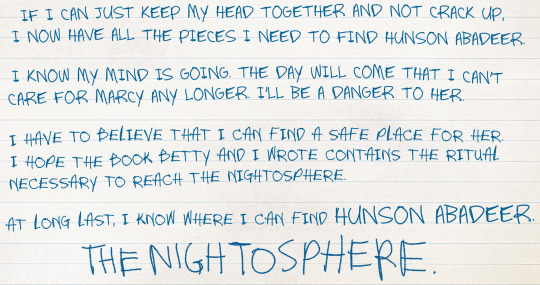 IF I CAN JUST KEEP MY HEAD TOGETHER AND NOT CRACK UP,
I NOW HAVE ALL THE PIECES I NEED TO FIND HUNSON ABADEER.
I KNOW MY MIND IS GOING. THE DAY WILL COME THAT I CAN'T
CARE FOR MARCY ANY LONGER. I'LL BE A DANGER TO HER.
I HAVE TO BELIEVE THAT I CAN FIND A SAFE PLACE FOR HER.
I HOPE THE BOOK BETTY AND I WROTE CONTAINS THE RITUAL
NECESSARY TO REACH THE NIGHTOSPHERE.
AT LONG LAST, I KNOW WHERE I CAN FIND HUNSON ABADEER.
THE NIGHTOSPHERE.